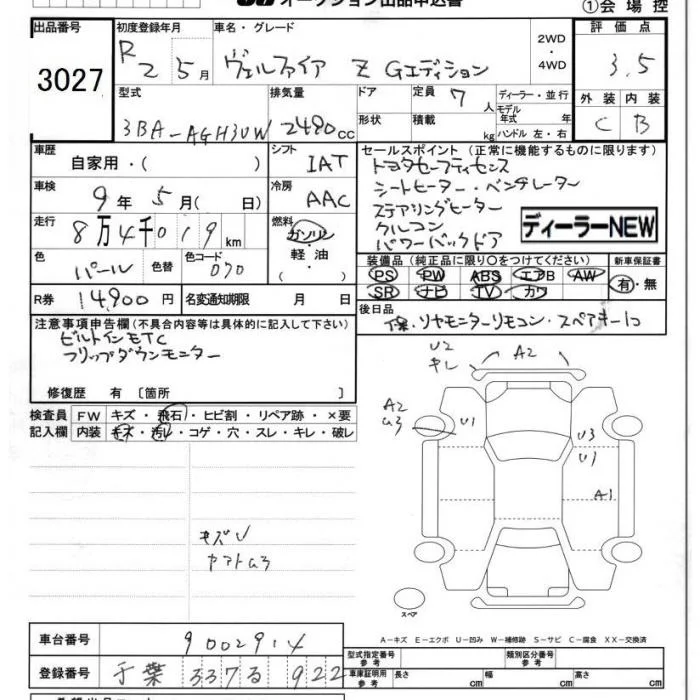 オークション出品申込書
①会場控
出品番号
3027
初度登録年月
R2 5月
車名・グレード
ヴェルファイア Z Gエディション
2WD・4WD
評価点
3.5
外装 内装
C B
型式
3BA-AGH30W
排気量
2490cc
ドア
形状
定員
7人
積載
kg
ディーラー・並行
モデル年式 年
ハンドル 左・右
車歴
自家用・( )
シフト
IAT
車検
9年5月( 日)
冷房
AAC
走行
8万4千019km
燃料
ガソリン・軽油・( )
色
パール
色替
色コード
070
R券
14,900円
名変通知期限 月 日
セールスポイント (正常に機能するものに限ります)
トヨタセーフティセンス
シートヒーター・ベンチレーター
ステアリングヒーター
クルコン
パワーバックドア
ディーラーNEW
装備品 (純正品に限り○をつけてください)
PS PW ABS エアB AW
SR ナビ TV カワ
新車保証書
有・無
後日品
保・リヤモニターリモコン・スペアキー1コ
注意事項申告欄(不具合内容等は具体的に記入して下さい)
ビルトインETC
フリップダウンモニター
修復歴 有 〔箇所 〕
検査員記入欄
FW キズ・飛石・ヒビ割・リペア跡・×要
内装 キズ・汚レ・コゲ・穴・スレ・キレ・破レ
キズU
U2
キレ
A2
A2
U3
U1
U3
U1
A1
スペア
A-キズ E-エクボ U-凹み W-補修跡 S-サビ C-腐食 XX-交換済
車台番号
9002914
登録番号
千葉 337 る 922
型式指定番号
参考
類別区分番号
参考
車庫証明用
参考
長さ cm
幅 cm
高さ cm